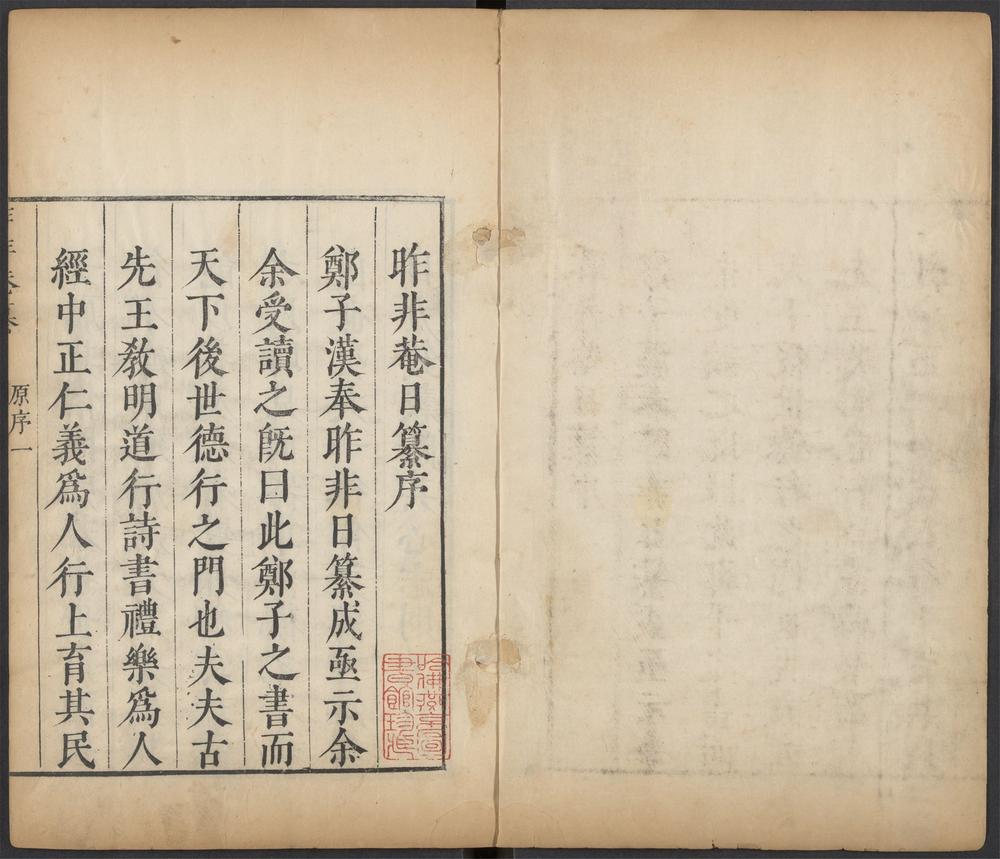 昨非菴日纂序
鄭子漢奉昨非日纂成亟示余
余受讀之旣曰此鄭子之書而
天下後世德行之門也夫夫古
先王敎明道行詩書禮樂爲人
經中正仁義爲人行上育其民
原序一
哈佛燕京圖書館珍藏